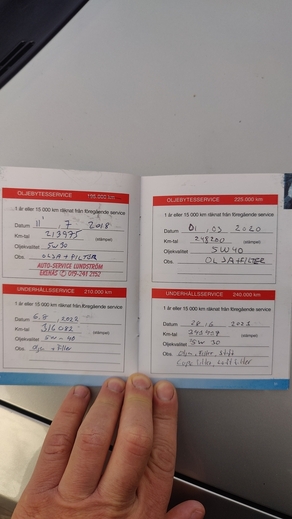 OLJEBYTESSERVICE 195.000 km
1 år eller 15 000 km räknat från föregående service
Datum 11 . 7 2018
Km-tal 213975 (stämpel)
Oljekvalitet 5W30
Obs. OLJA + FILTER
AUTO-SERVICE LUNDSTRÖM
EKENÄS ✆ 019-241 2152
UNDERHÅLLSSERVICE 210.000 km
1 år eller 15 000 km räknat från föregående service
Datum 6.8 , 2022
Km-tal 316082 (stämpel)
Oljekvalitet 5W-40
Obs. Olja + Filter
OLJEBYTESSERVICE 225.000 km
1 år eller 15 000 km räknat från föregående service
Datum 01 . 03 2020
Km-tal 248200 (stämpel)
Oljekvalitet 5W40
Obs. OLJA+FILTER
UNDERHÅLLSSERVICE 240.000 km
1 år eller 15 000 km räknat från föregående service
Datum 28.6 2023
Km-tal (stämpel)
Oljekvalitet 5W 30
Obs. Olja, Filter,
filter, luft filter